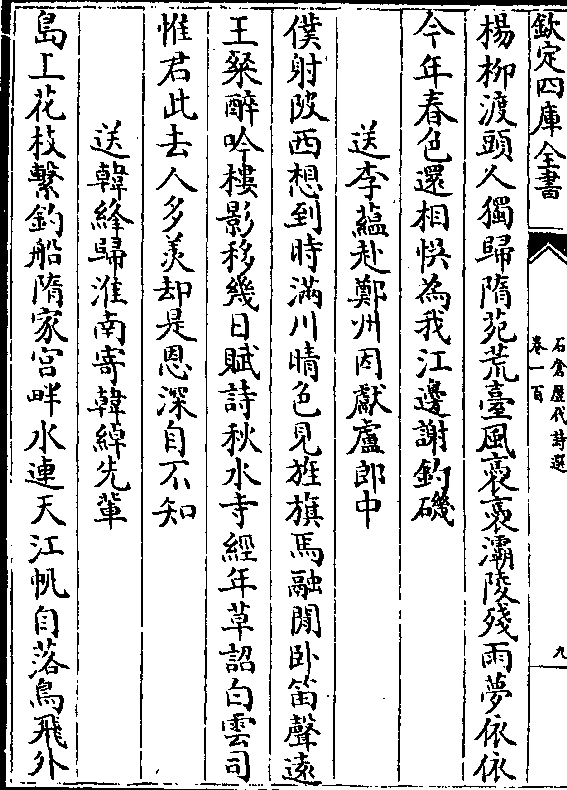 欽定四庫全書
石倉歷代詩選
卷一百
九
楊柳渡頭人獨歸隋苑荒臺風裊裊灞陵殘雨夢依依
今年春色還相悞為我江邊謝釣磯
送李蘊赴鄭州因獻盧郎中
僕射陂西想到時滿川晴色見旌旗馬融閒卧笛聲遠
王粲醉吟樓影移幾日賦詩秋水寺經年草詔白雲司
惟君此去人多羨却是恩深自不知
送韓絳歸淮南寄韓綽先輩
島上花枝繫釣船隋家宮畔水連天江帆自落鳥飛外